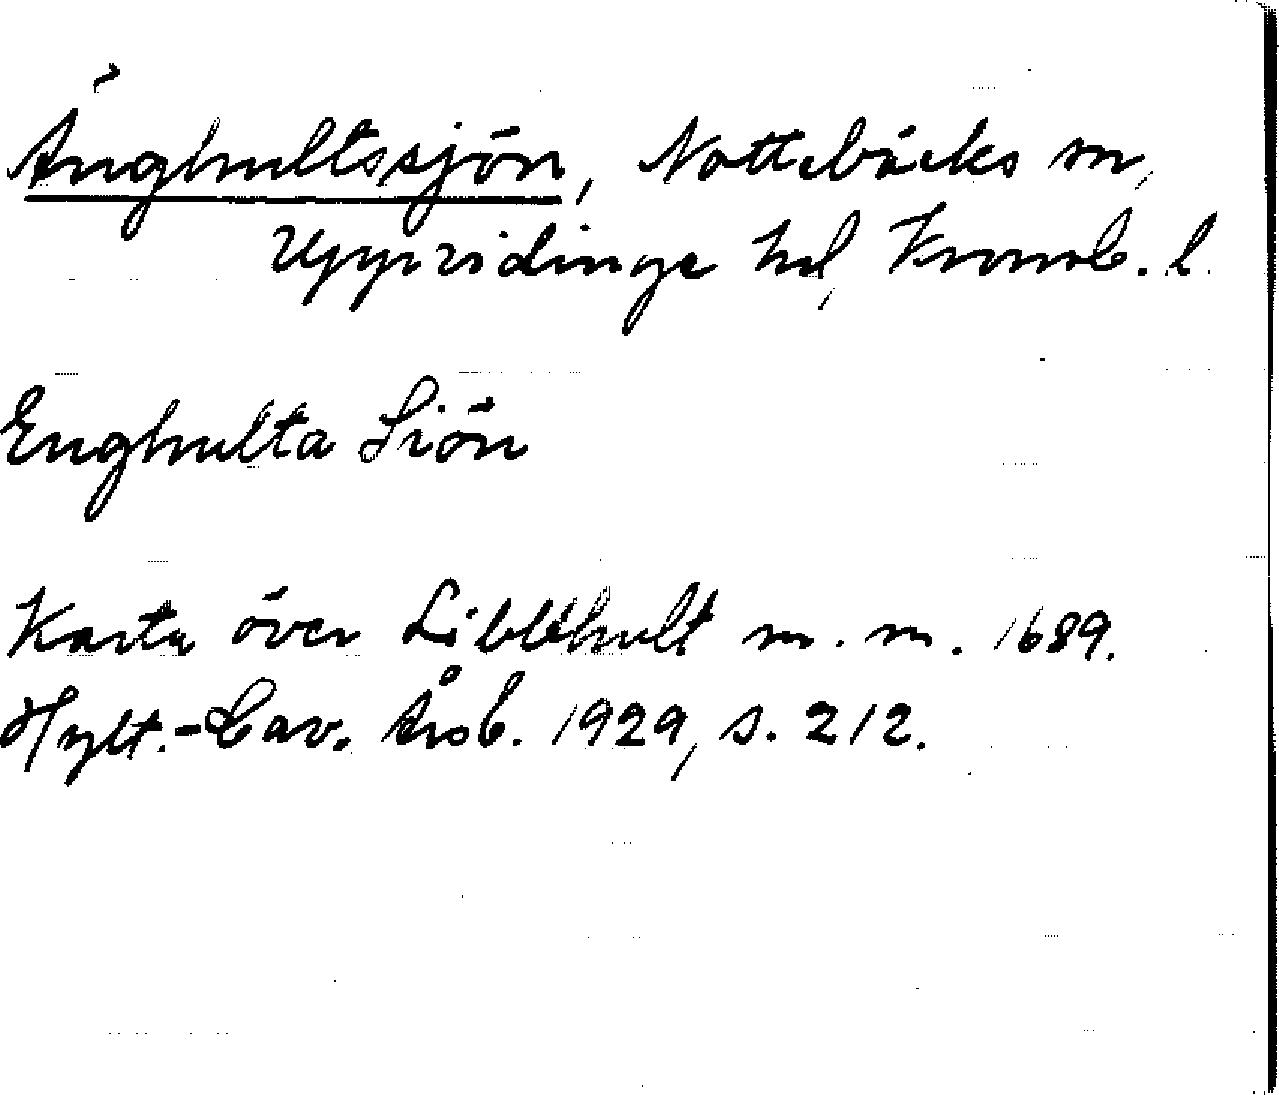 Änghultssjön, Nottebäcks sn,
Uppvidinge hd, Kronob. l.
Enghulta Siön
Karta över Libblhult m. m. 1689.
Hylt.-Cav. Årsb. 1929, s. 212.